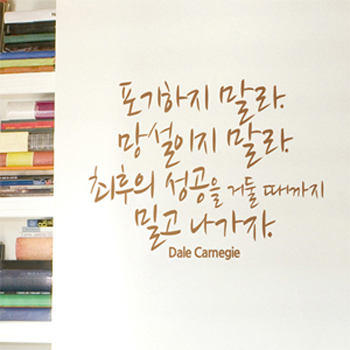 포기하지 말라.
망설이지 말라.
최후의 성공을 거둘 때까지
밀고 나가자.
Dale Carnegie